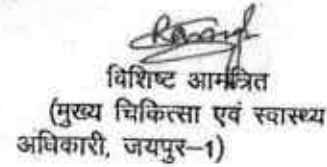 विशिष्ट आमंत्रित
(मुख्य चिकित्सा एवं स्वास्थ्य
अधिकारी, जयपुर–1)